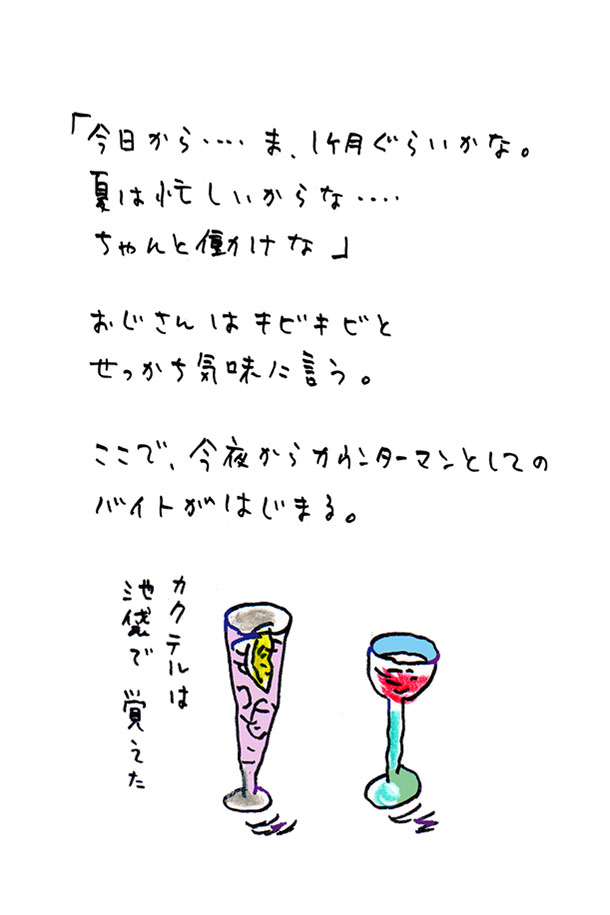 「今日から‥‥ま、1ヶ月ぐらいかな。
夏は忙しいからな‥‥
ちゃんと働かけな」
おじさんはキビキビと
せっかち気味に言う。
ここで、今夜からカウンターマンとしての
バイトがはじまる。
カクテルは
池袋で覚えた